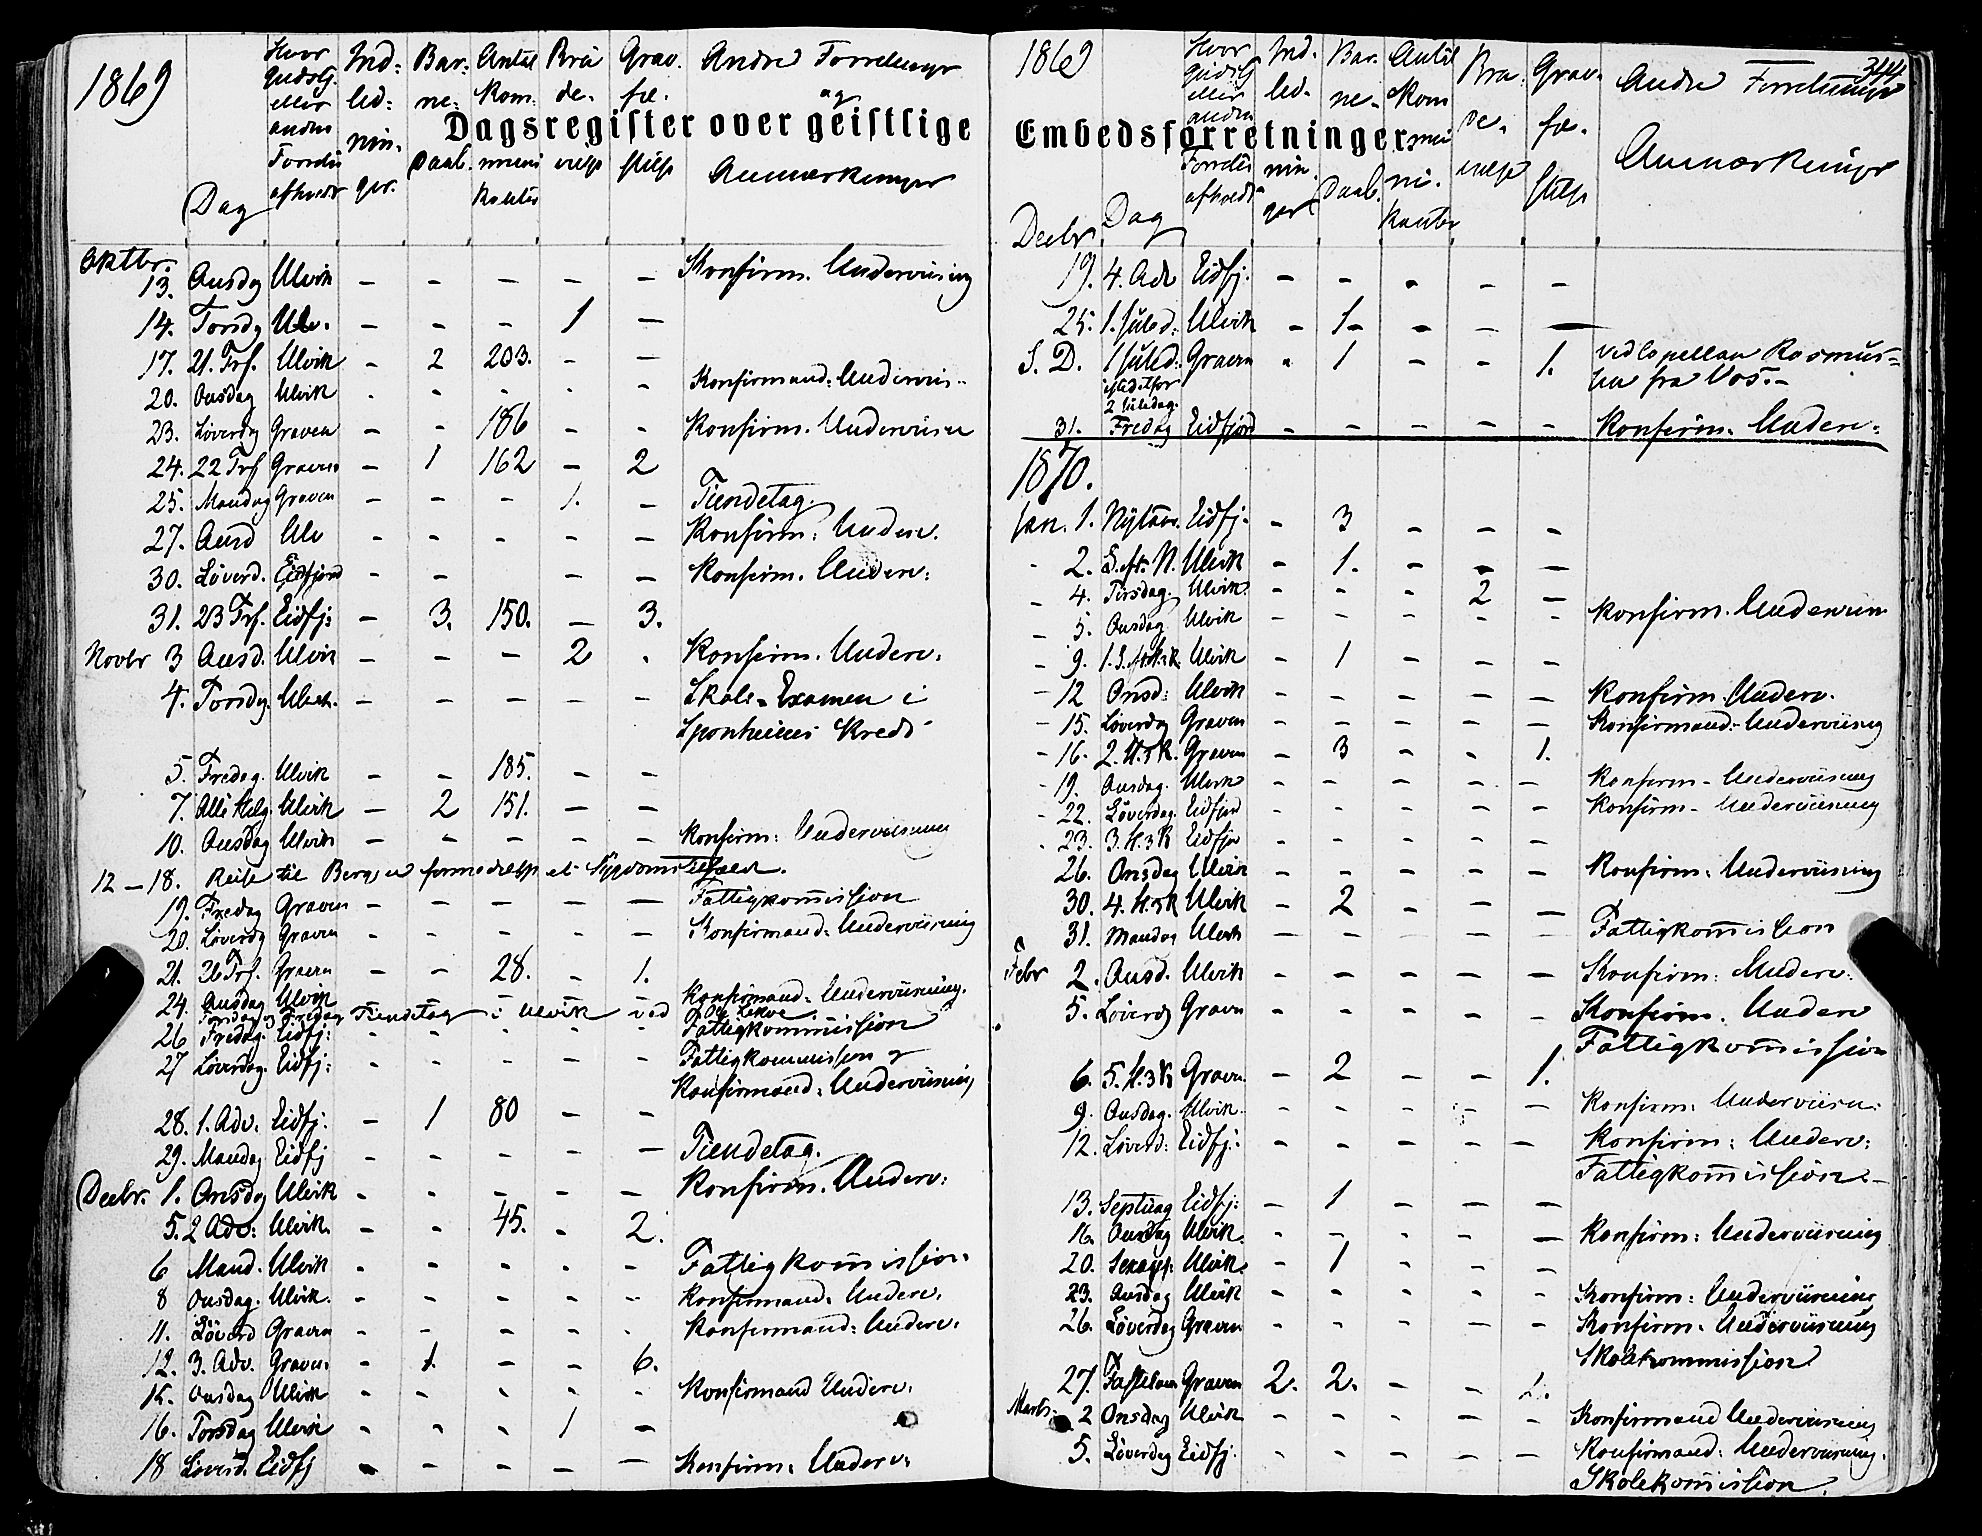 1869
Dag
Hvor Gudstj. eller anden Forretn. afholdt
Ind: led: nin. ger.
Bar: ne: Daab.
Antal Kom: muni kanter
Bru de. vielse
Grav. fæ. stelse
Andre Forretninger og Anmærkninger
Dagsregister over geistlige
Oktbr.
13. Onsdag Ulvik – – – – – Konfirm. Underviisning
14. Torsdg Ulv. – – – 1 –
17. 21. Trf. Ulvik – 2 203. – –
20. Onsdag Ulvik . - . . - Konfirmand: Underviis-
23. Løverdg Graven – - 186 – – Konfirm. Underviisn
24. 22 Trf Graven – 1 162 – 2
25. Mandag Graven – – – 1. – Tiendetag.
27. Onsd Ulv – – – – – Konfirm: Underv.
30. Løverd. Eidfjord – – – – – Konfirm. Underv:
31. 23 Trf. Eidfj: – 3. 150. – 3.
Novbr 3 Onsd. Ulvik – – – 2 . Konfirm. Underv.
4. Torsdg. Ulvik. – – – – – Skole-Examen i
Sponheims Kreds
5. Fredag. Ulvik – – 185. – –
7. Alle Helg. Ulvik – 2 151. – –
10. Onsdag Ulvik – – – – – Konfirm: Underviisning
12–18. Reise til Bergen formedelst et Sygdomstilfælde.
19. Fredag Graven – – – – – Fattigkommission
20. Løverdg Graven – – – – – Konfirmand: Underviisning
21. 26 Trf. Graven – – 28. – 1.
24. Onsdag Ulvik Konfirmand: Underviisning.
Torsdag og Fredag Tiendetag i Ulvik ved
26 Fredag. Eidfj: - - - - - Fattigkommission
27 Løverdag. Eidfj: - - - - – Fattigkommission og
Konfirmand: Underviisning
28. 1. Adv. Eidfj: – 1 80 – –
29. Mandag Eidfj - - - - – Tiendetag.
Decbr. 1. Onsdag Ulvik - - - - – Konfirm. Underv:
5. 2 Adv: Ulvik. - - 45. - 2.
6 Mand. Ulvik - - - - - Fattigkommission.
8 Onsdag. Ulvik. - - - - - Konfirmand: Underv.
11. Løverd Graven - - - - - Konfirmand: Underv.
12. 3. Adv. Graven. - 1. – – 6.
15. Onsdag Ulvik - - - - - Konfirmand Underv.
16. Torsdag Ulvik - - - 1 –
18 Løverd. Eidfj - – – – – Konfirm: Underv:
1869
344
Decbr.
Dag
Hvor Gudstj eller anden Forretn afholdt
Ind. led- nin. ger.
Bar. ne- Daab.
Antal Kom mu ni. kanter
Bru. de. vielse
Grav. fæ. stelse
Andre Forretninger
Anmærkninger
Embedsforretninger
19. 4. Adv Eidfj. – – – – –
25. 1. Juled: Ulvik – 1 – – –
S. D. 1 Juled: Graven - 1 – – 1. ved Capellan Rasmus-
istedetfor 2 Juledag. sen fra Vos.–
31. Fredag Eidfjord – – – – – Konfirm. Underv:
1870.
Jan. 1. Nytaar. Eidfj- – 3 – – –
- 2. S. ft. N. Ulvik – 1. – – –
- 4. Tirsdag. Ulvik. – - - 2 –
- 5. Onsdag Ulvik – - - - - Konfirm. Underviisn
- 9. 1. S. ft. H.3.K. Ulvik – 1 – – –
- 12 Onsd: Ulvik – – – – – Konfirm. Underv.
- 15. Løverdag Graven – – – – – Konfirmand: Underviisning
- 16. 2. H.3K. Graven – 3 - - 1.
- 19. Onsdag. Ulvik – – – – – Konfirm- Underviisning
- 22. Løverdag. Eidfjord – – – – – Konfirm- Underviisning
- 23. 3. H.3K Eidfjo – – – – –
26. Onsdag Ulvik – – – – – Konfirm: Underviisning
30. 4. H.3K Ulvik – 2 – – –
31. Mandag Ulvik – – – – – Fattigkommission
Febr 2. Onsd. Ulvik – – – – – Konfirm: Underv.
5. Løverdg Graven – – – – – Konfirm. Underv
Fattigkommission
6. 5. H.3K Graven. – 2 – – 1.
9. Onsdag. Ulvik. - - - - – Konfirm: Underviisn:
12. Løverd: Eidfj: - - - - – Konfirm: Underv:
Fattigkommission.–
13. Septuag Eidfj: – 1 – – –
16. Onsdag Ulvik. - - - - – Konfirm: Underviisning
20. Sexag: Ulvik. - 1 - - -
23. Onsdag Ulvik - - - - - Konfirm: Underviisning
26. Løverdag Graven. - - - - - Konfirm. Underviisning
Skolekommission
27. Fastelavn Graven 2. 2. – –
Marts. 2 Onsdag Ulvik - - - - - Konfirmand Underviisning
5. Løverdag Eidfj: - - - - - Konfirmand: Underviisning.
Skolekommission.